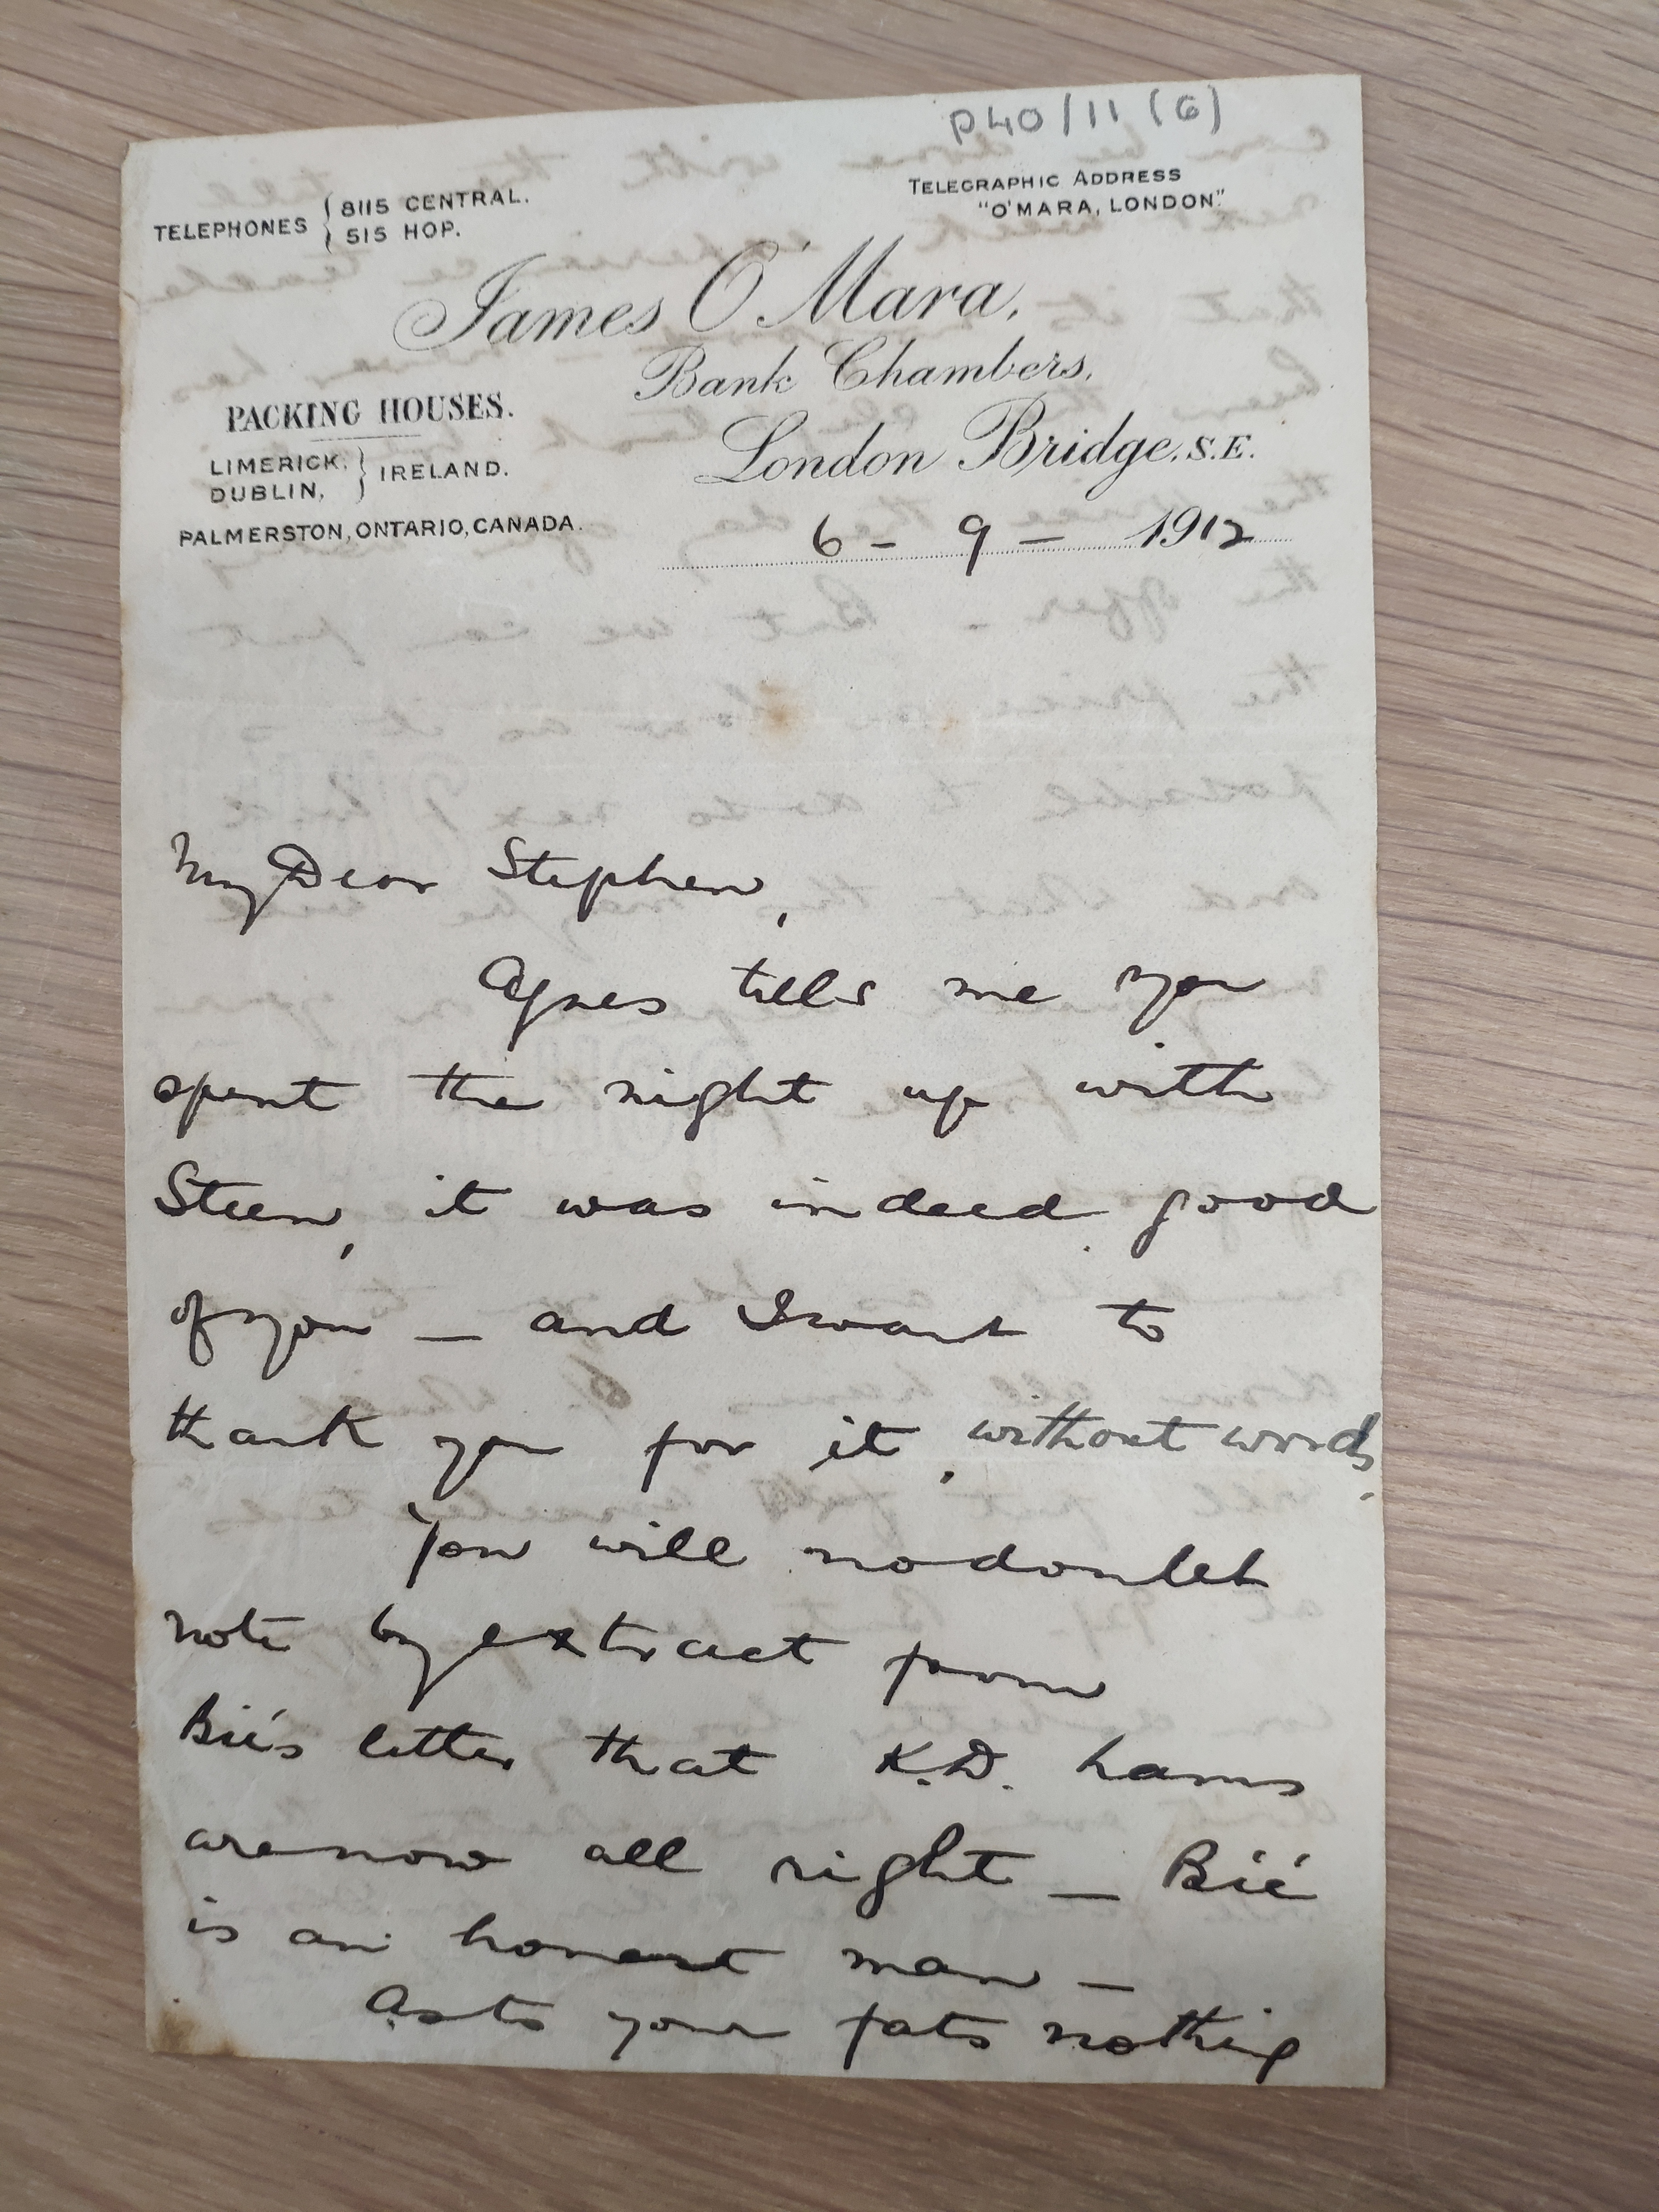 P40/11 (6)
TELEPHONES { 8115 CENTRAL.
515 HOP.
TELEGRAPHIC ADDRESS
"O'MARA, LONDON."
James O'Mara,
Bank Chambers,
London Bridge, S.E.
PACKING HOUSES.
LIMERICK, } IRELAND.
DUBLIN,
PALMERSTON, ONTARIO, CANADA.
6 - 9 - 1912
My Dear Stephen,
Agnes tells me you
spent the night up with
Steen, it was indeed good
of you — and I want to
thank you for it, without words.
You will no doubt
note by extract from
Bié's letter that K.D. hams
are now all right — Bié
is an honest man —
As to your fats nothing